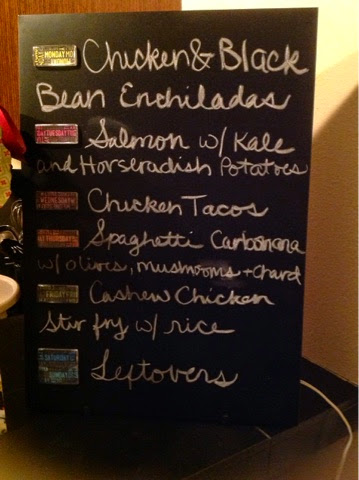 MONDAY Chicken & Black
Bean Enchiladas
TUESDAY Salmon w/ Kale
and Horseradish Potatoes
WEDNESDAY Chicken Tacos
THURSDAY Spaghetti Carbonara
w/ olives, mushrooms + chard
FRIDAY Cashew Chicken
Stir fry w/ rice
SATURDAY Leftovers
SUNDAY